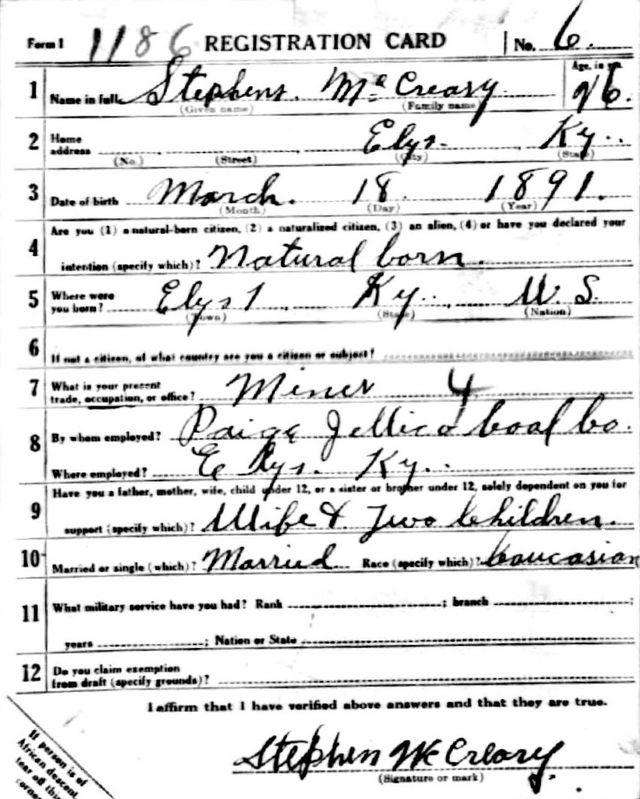 Form 1 1186 REGISTRATION CARD No. 6.
1 Name in full Stephens. Mc Creary. Age, in yrs. 26.
(Given name) (Family name)
2 Home address Elys. Ky.
(No.) (Street) (City) (State)
3 Date of birth March. 18 1891.
(Month) (Day) (Year)
Are you (1) a natural-born citizen, (2) a naturalized citizen, (3) an alien, (4) or have you declared your
4 intention (specify which)? Natural born.
5 Where were you born? Elys Ky. U. S.
(Town) (State) (Nation)
6 If not a citizen, of what country are you a citizen or subject?
7 What is your present trade, occupation, or office? Miner 4
8 By whom employed? Paige Jellico Coal Co.
Where employed? Elys. Ky.
Have you a father, mother, wife, child under 12, or a sister or brother under 12, solely dependent on you for
9 support (specify which)? Wife & Two Children.
10 Married or single (which)? Married Race (specify which)? Caucasian
11 What military service have you had? Rank ; branch ;
years ; Nation or State
12 Do you claim exemption from draft (specify grounds)?
I affirm that I have verified above answers and that they are true.
Stephen McCreary
(Signature or mark)
If person is of
African descent,
tear off this
corner